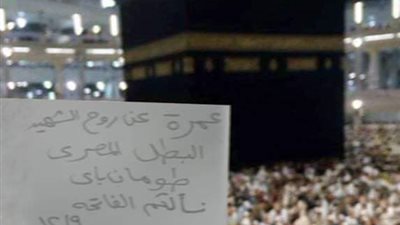 عمرة عن روح الشهيد
البطل المصرى
طومان باى
نسألكم الفاتحة